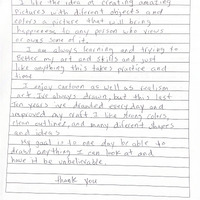 I like the idea of creating amazing
Pictures with diferent objects and
colors a picture that will bring
happieness to any person who views
or owns some of it.
I am always learning and trying to
Better my art and skills and just
like anything this takes practice and
time
I enjoy cartoon as well as realism
art. Ive always drawn, but this last
ten years ive drawled everyday and
improved my craft I like strong colors,
clean outlined, and many diferent shapes
and ideas
My goal is to one day be able to
draw anything I can look at and
have it be unbelievable.
Thank you